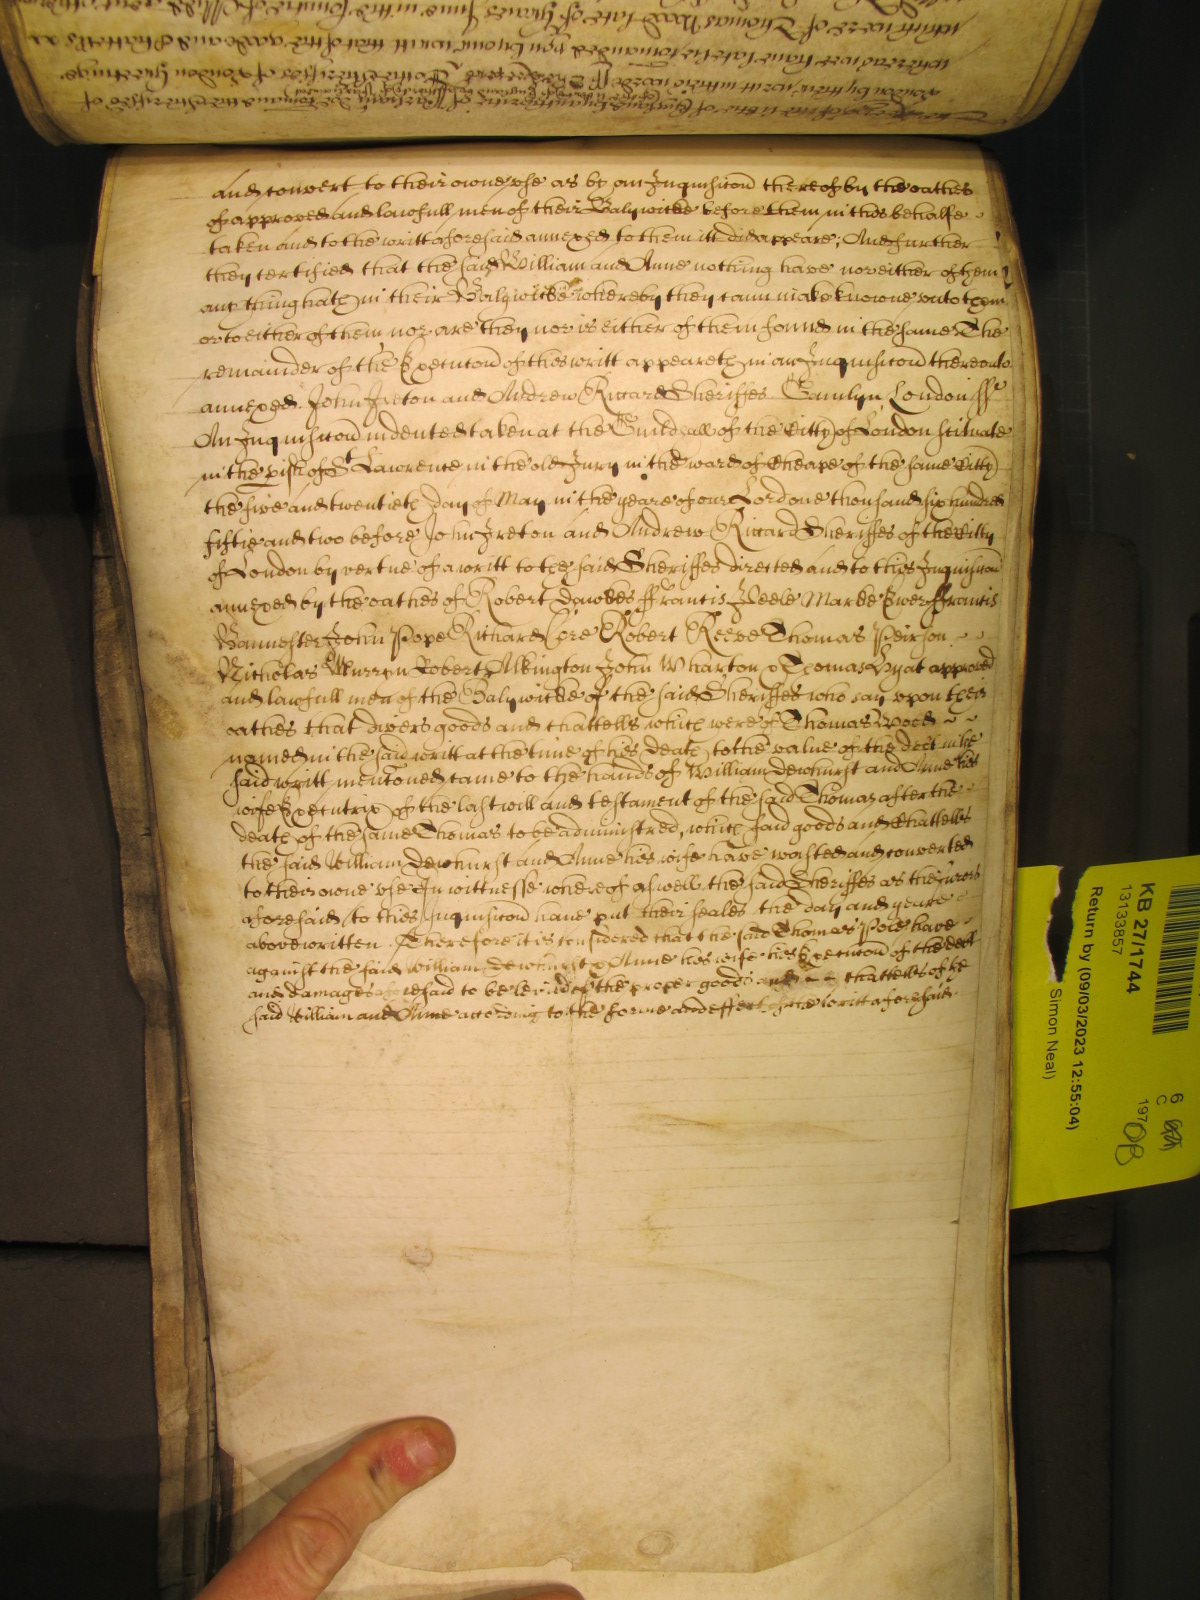 and convert to their owne use as by an Inquisicon thereof by the oathes
of approved and lawfull men of their Baliwicke before them in this behalfe
taken and to the writt aforesaid annexed to them itt did appeare; And further
they certified that the said William and Anne nothing have nor either of them
any thing hath in their Baliwicke whereby they cann make knowne unto them
or to either of them nor are they nor is either of them found in the same The
remainder of the Execucon of this writt appeareth in an Inquisicon thereunto
annexed John Ireton and Andrew Riccard Sheriffes London ss
An Inquisicon indented taken at the Guildhall of the Citty of London scituate
in the pish of St Lawrence in the old Jury in the ward of Cheape of the same Citty
the five and twentieth day of May in the yeare of our Lord one thousand six hundred
fiftie and two before John Ireton and Andrew Riccard Sheriffes of the Citty
of London by vertue of a writt to the said Sheriffes directed and to this Inquisicon
annexed by the oathes of Robert ffrancis Peele Marke ffrancis
Bannester John Pope Richard Robert Reeve Thomas Peirson
Nicholas Robert Alkington John Wharton & Thomas Hyat approved
and lawfull men of the Baliwicke of the said Sheriffes who say upon their
oathes that divers goods and chattells which were of Thomas Wood
named in the said writt at the time of his death to the value of the debt in the
said writt menconed came to the hands of William Dewhurst and Anne his
wife Executrix of the last will and testament of the said Thomas after the
death of the same Thomas to be administred, which said goods and Chattells
the said William Dewhurst and Anne his wife have wasted and converted
to their owne use In wittnesse whereof aswell the said Sheriffes as the Jurors
aforesaid to this Inquisicon have put their seales the day and yeare
abovewritten Therefore it is considered that the said Thomas have
against the said William Dewhurst & Anne his wife his Execucon of the debt
and damages aforesaid to be levied of the proper goods and chattells of the
said William and Anne according to the forme and effect of the writt aforesaid
KB 27/1744
13133857
Return by (09/03/2023 12:55:04)
Simon Neal)
6
C
197